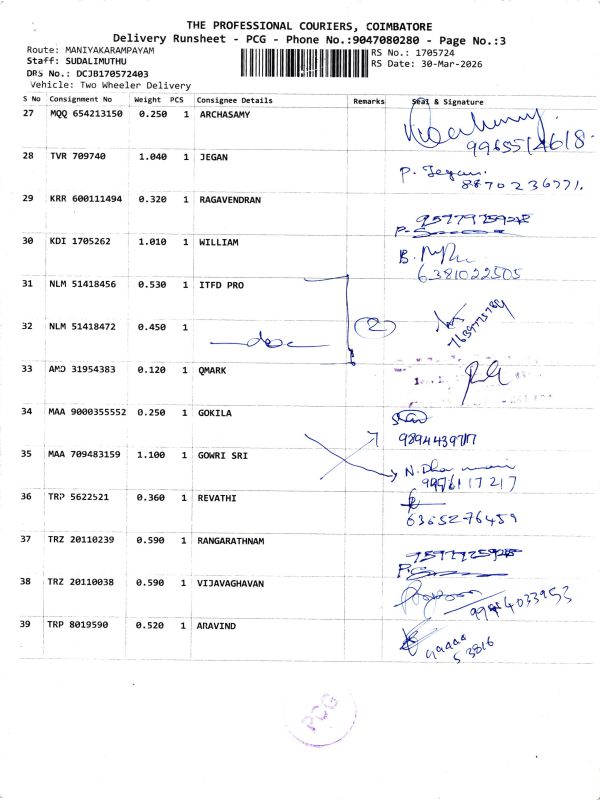 THE PROFESSIONAL COURIERS, COIMBATORE
Delivery Runsheet - PCG - Phone No.:9047080280 - Page No.:3
Route: MANIYAKARAMPAYAM
RS No.: 1705724
Staff: SUDALIMUTHU
RS Date: 30-Mar-2026
DRS No.: DCJB170572403
Vehicle: Two Wheeler Delivery
S No Consignment No Weight PCS Consignee Details Remarks Seal & Signature
27 MQQ 654213150 0.250 1 ARCHASAMY
9965514618
28 TVR 709740 1.040 1 JEGAN P. Jegan.
8870236771.
29 KRR 600111494 0.320 1 RAGAVENDRAN
30 KDI 1705262 1.010 1 WILLIAM
6381022505
31 NLM 51418456 0.530 1 ITFD PRO
(2)
32 NLM 51418472 0.450 1
33 AMD 31954383 0.120 1 QMARK
34 MAA 9000355552 0.250 1 GOKILA
35 MAA 709483159 1.100 1 GOWRI SRI
9976117217
36 TRP 5622521 0.360 1 REVATHI
37 TRZ 20110239 0.590 1 RANGARATHNAM
38 TRZ 20110038 0.590 1 VIJAVAGHAVAN
39 TRP 8019590 0.520 1 ARAVIND
PCG